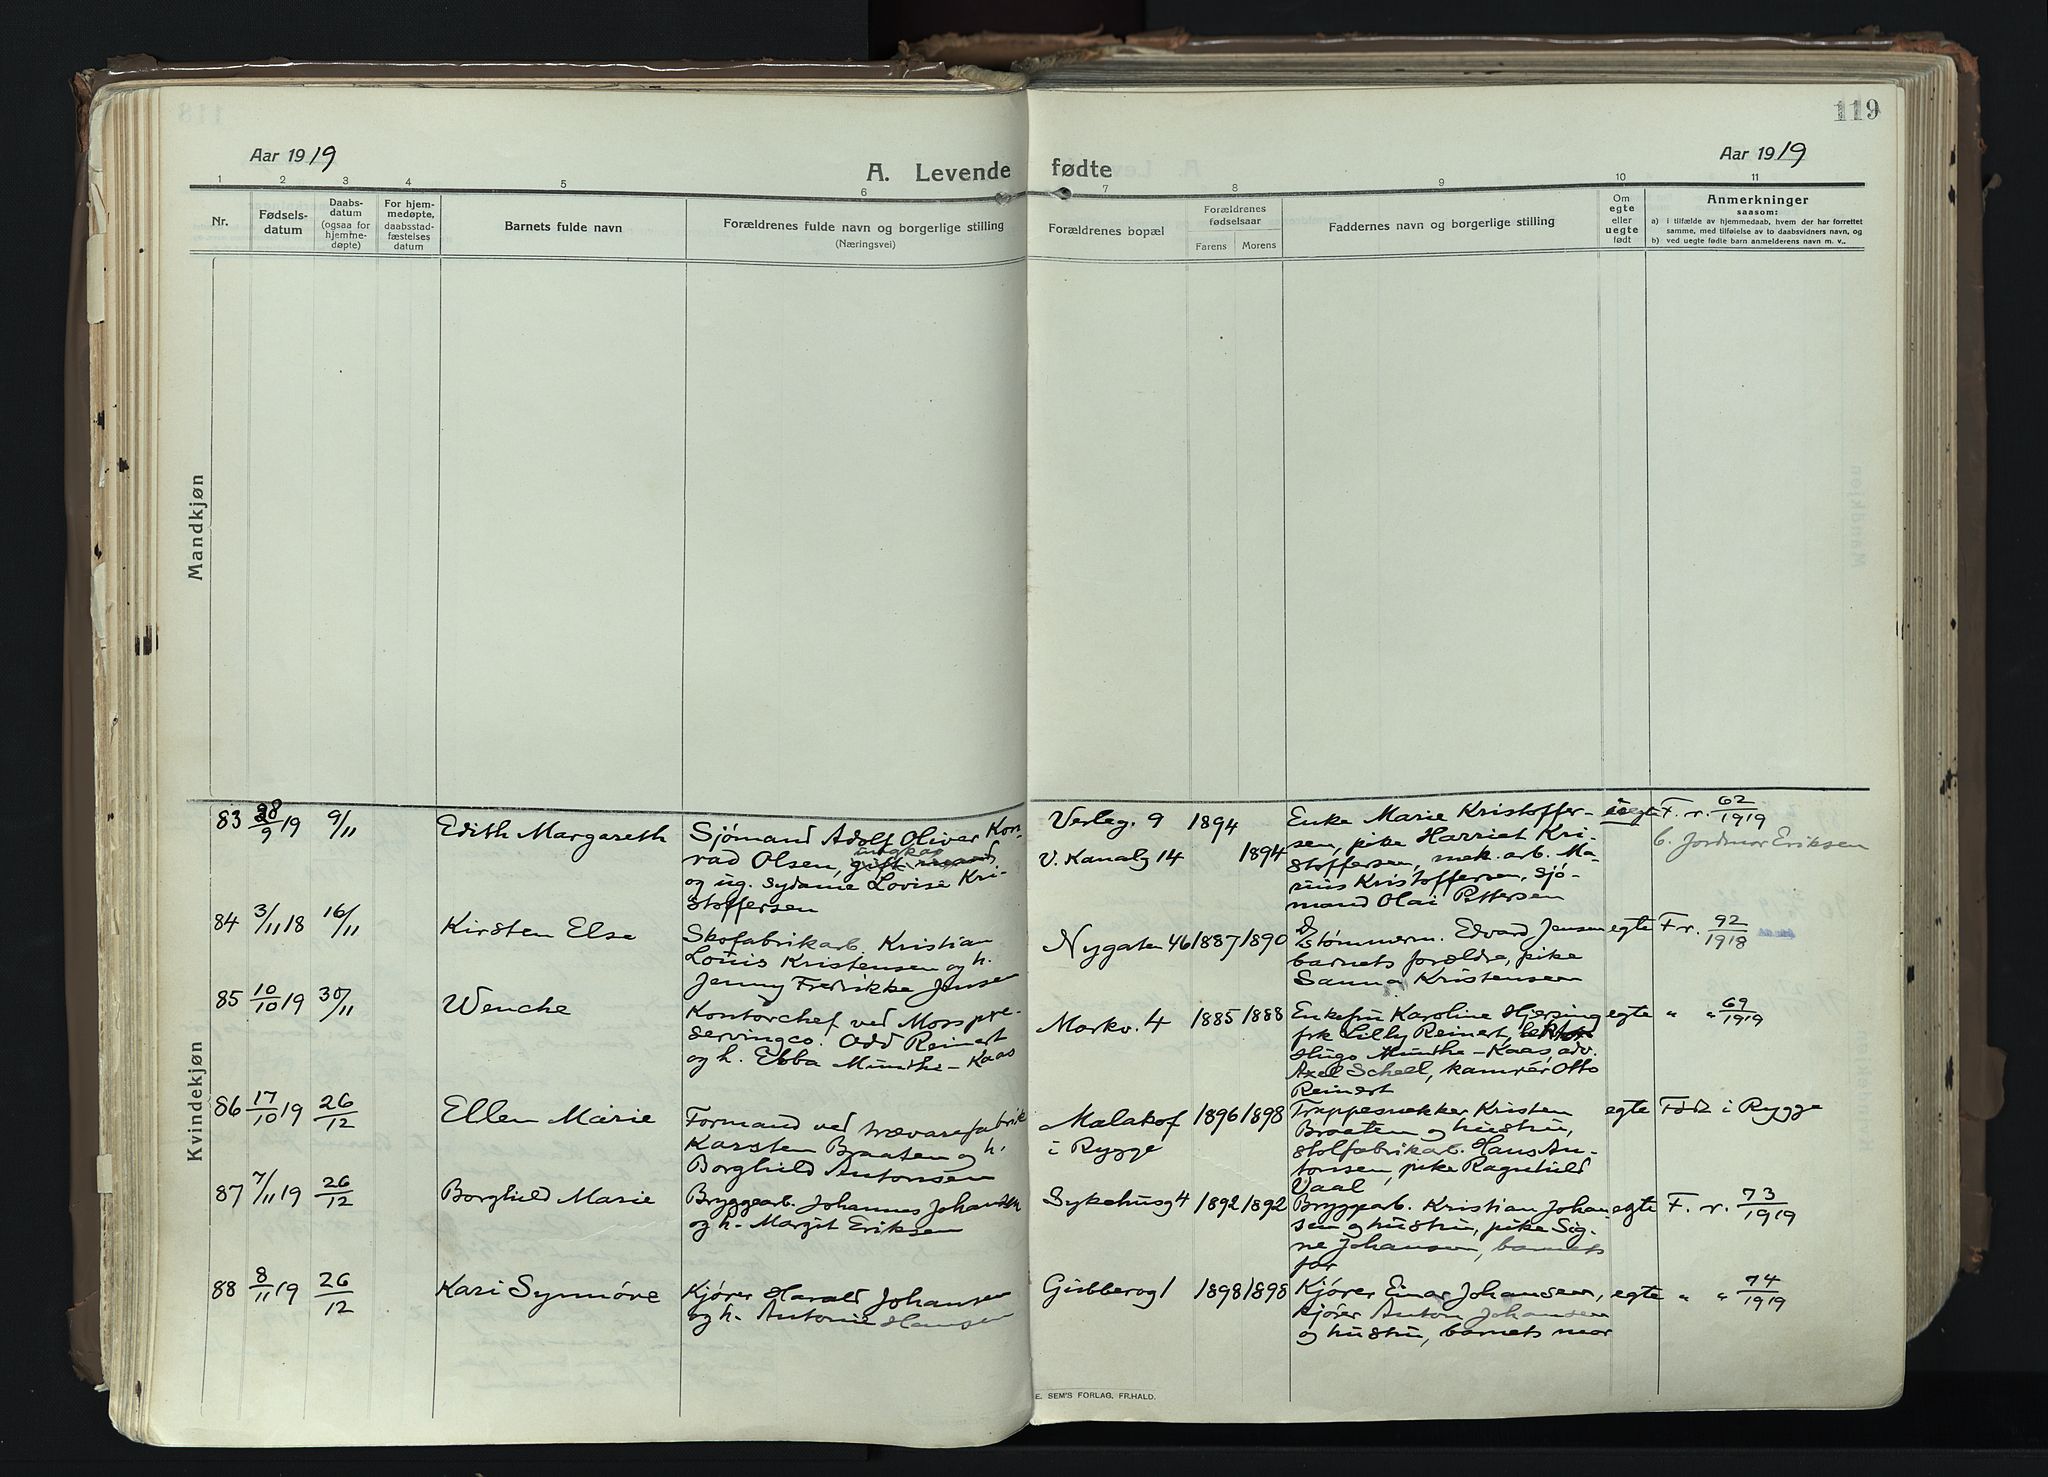 119
Aar 1919
A. Levende fødte
Aar 1919
1 2 3 4 5 6 7 8 9 10 11
Nr.
Fødsels-
datum
Daabs-
datum
(ogsaa for
hjemme-
døpte)
For hjem-
medøpte,
daabsstad-
fæstelses
datum
Barnets fulde navn
Forældrenes fulde navn og borgerlige stilling
(Næringsvei)
Forældrenes bopæl
Forældrenes
fødselsaar
Farens Morens
Faddernes navn og borgerlige stilling
Om
egte
eller
uegte
født
Anmerkninger
saasom:
a) i tilfælde av hjemmedaab, hvem der har forrettet
samme, med tilføielse av to daabsvidners navn, og
b) ved uegte fødte barn anmelderens navn m. v..
Mandkjøn
Kvindekjøn
83 28/9 19 9/11
Edith Margareth
Sjømand Adolf Oliver Kon-
rad Olsen, ungkar gift mand
og ug. sydame Lovise Kri-
stoffersen
Verleg. 9 1894
V. Kanalg 14 1894
Enke Marie Kristoffer-
sen, pike Harriet Kri-
stoffersen, mek. arb. Ma-
rius Kristoffersen, sjø-
mand Olai Pettersen
uegte
F. r. 62/1919
b. Jordmor Eriksen
84 3/11 18 16/11
Kirsten Else
Skofabrikarb. Kristian
Louis Kristensen og h.
Jenny Fredrikke Jensen
Nygaten 46 1887 1890
tømmerm. Edvard Jensen
barnets forældre, pike
Sanna Kristensen
egte
F. r. 92/1918
85 10/10 19 30/11
Wenche
Kontorchef ved Moss pre-
servingco. Odd Reinert
og h. Ebba Munthe-Kaas
Markv. 4 1885 1888
Enkefru Karoline Hjersing
frk Lilly Reinert,
Hugo Munthe-Kaas, adv.
Axel Scheel, kamrér Otto
Reinert
egte
" " 69/1919
86 17/10 19 26/12
Ellen Marie
Formand ved trævarefabrik
Karsten Braaten og h.
Borghild Antonsen
Malakof
i Rygge
1896 1898
Trappesnekker Kristen
Braaten og hustru,
stolfabrikarb. Hans An-
tonsen, pike Ragnhild
Vaal
egte
Født i Rygge
87 7/11 19 26/12
Borghild Marie
Bryggearb. Johannes Johansen
og h. Margit Eriksen
Sykehusg 4 1892 1892
Bryggearb. Kristian Johan-
sen og hustru, pike Sig-
ne Johansen, barnets
far
egte
F. r. 73/1919
88 8/11 19 26/12
Kari Synnøve
Kjører Harald Johansen
og h. Antonie Hansen
Gubberog 1 1898 1898
Kjører Einar Johansen,
kjører Anton Johansen
og hustru, barnets mor
egte
" " 74/1919
E. SEM'S FORLAG, FR.HALD.